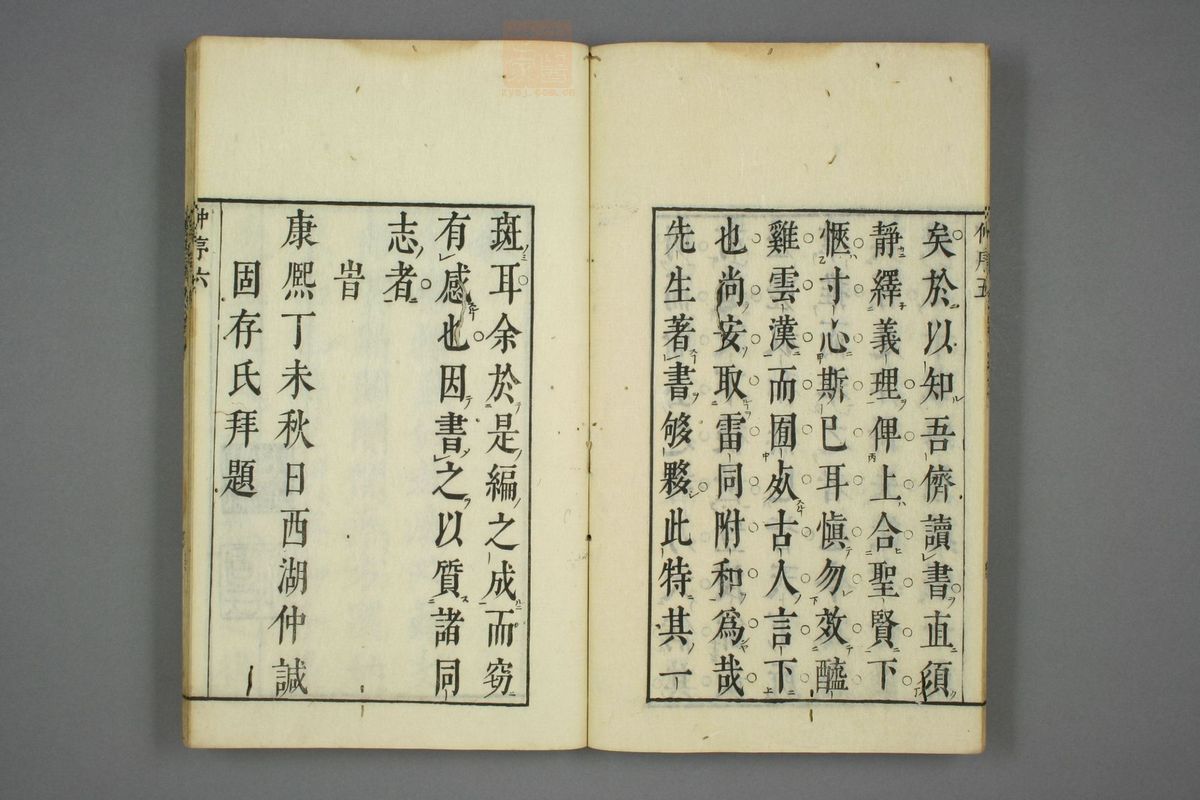 矣於以知吾儕讀書直須
靜繹義理俾上合聖賢下
愜寸心斯已耳愼勿效醯
雞雲漢而囿於古人言下
也尚安取雷同附和爲哉
先生著書够夥此特其一
斑耳余於是編之成而窃
有感也因書之以質諸同
志者
旹
康熙丁未秋日西湖仲誠
固存氏拜題
仲序五
仲序六
zysj.com.cn